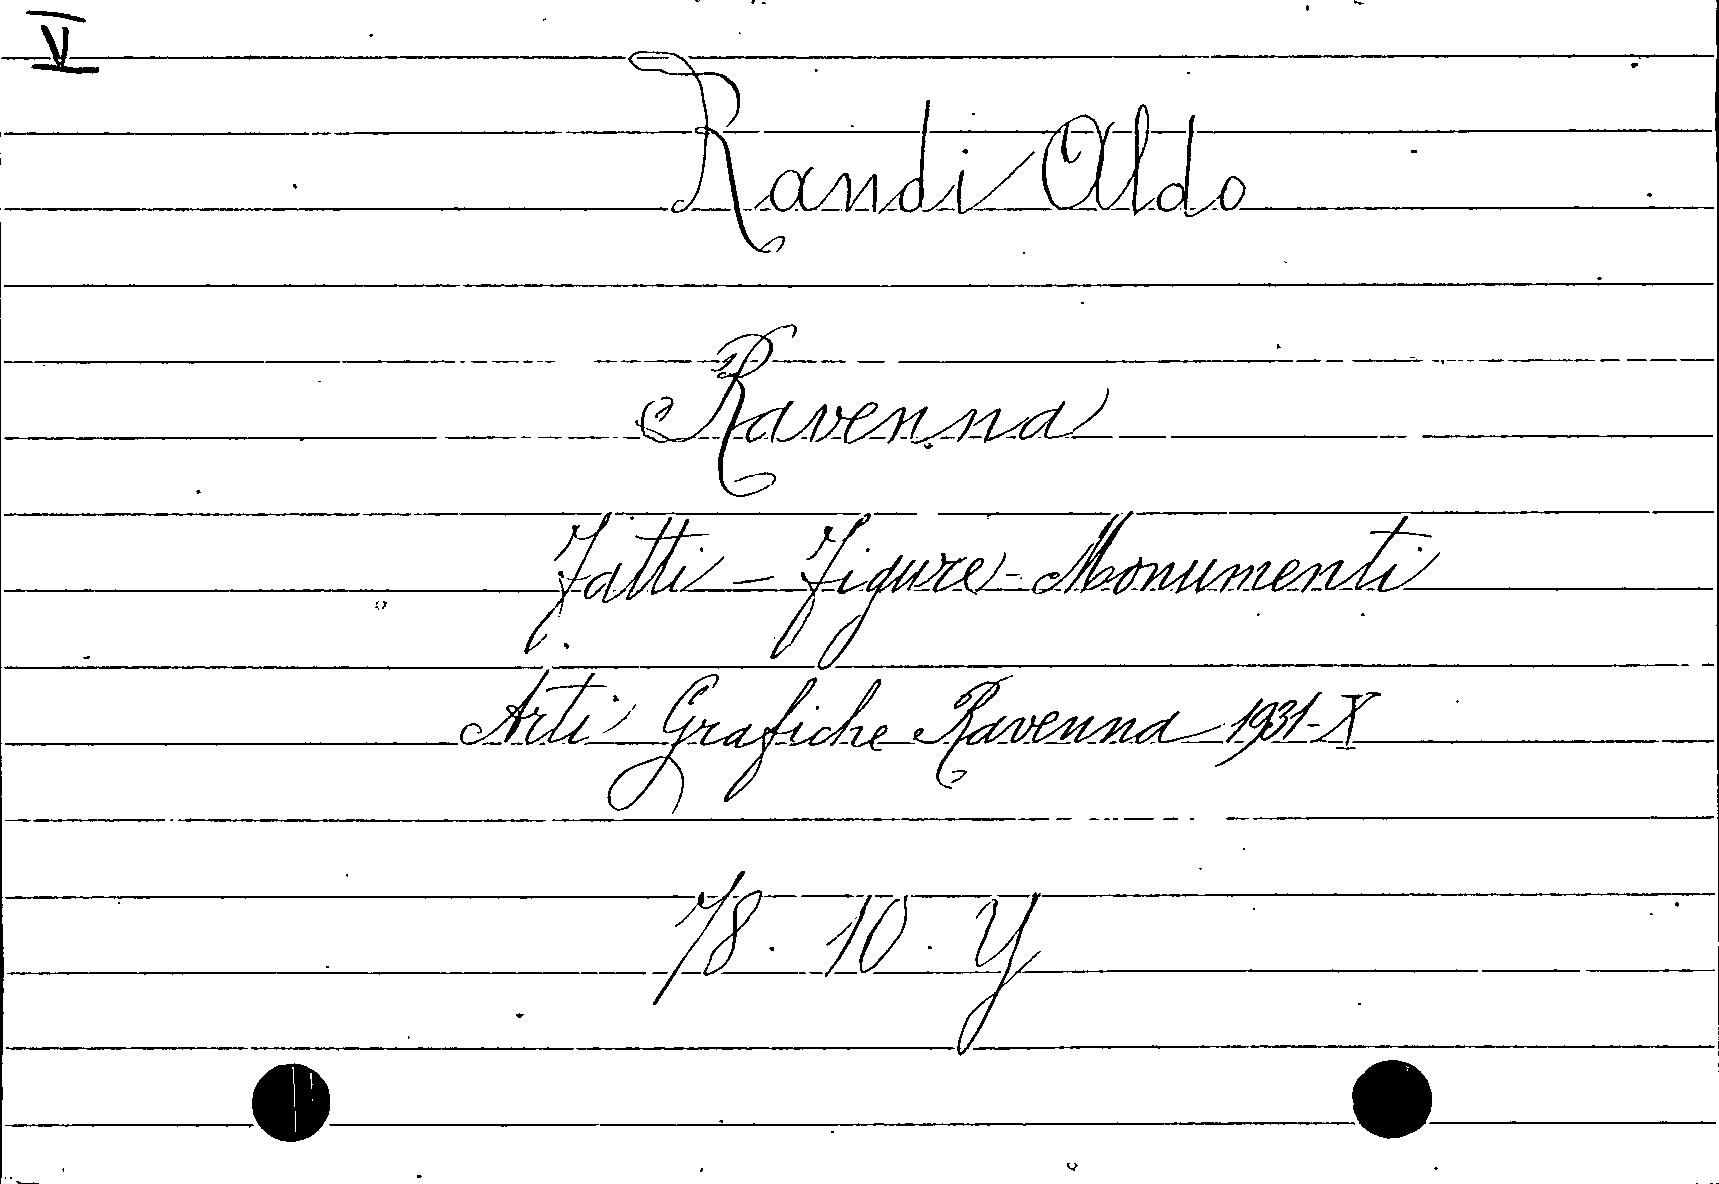 V
Randi Aldo
Ravenna
Fatti - Figure - Monumenti
Arti Grafiche Ravenna 1931-X
78. 10. Y